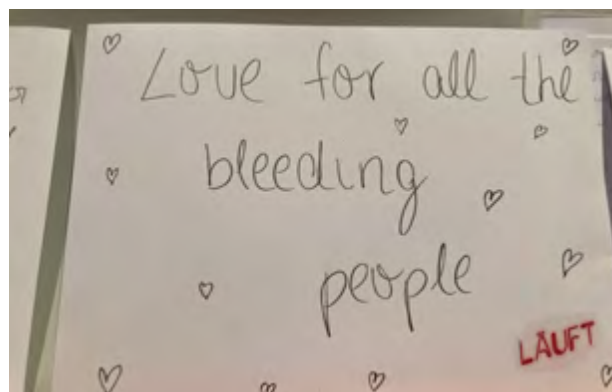 Love for all the
bleeding
people
LÄUFT